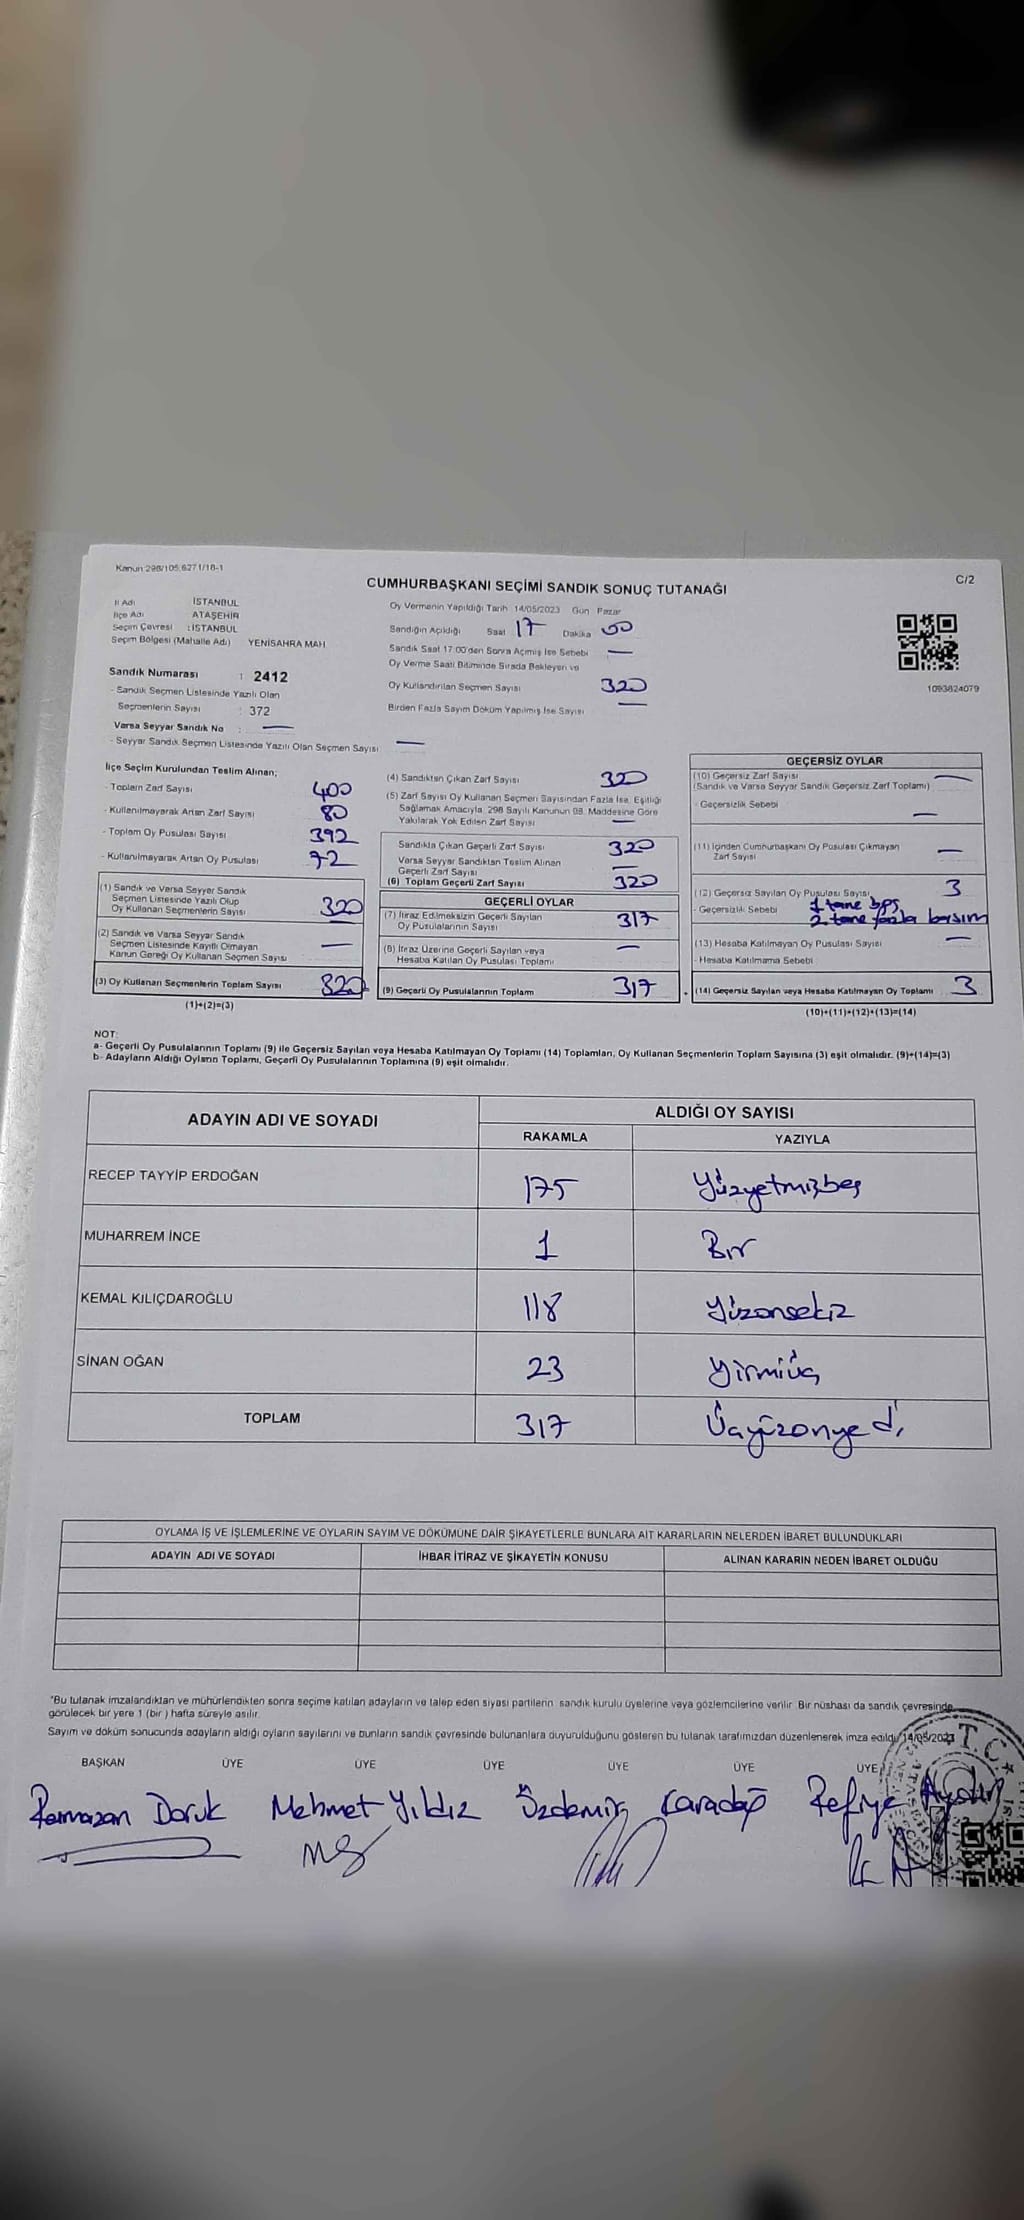 Kanun 298/105;6271/18-1
C/2
CUMHURBAŞKANI SEÇİMİ SANDIK SONUÇ TUTANAĞI
İl Adı İSTANBUL
İlçe Adı ATAŞEHİR
Seçim Çevresi : İSTANBUL
Seçim Bölgesi (Mahalle Adı) YENİSAHRA MAH
Sandık Numarası : 2412
- Sandık Seçmen Listesinde Yazılı Olan
Seçmenlerin Sayısı : 372
Varsa Seyyar Sandık No : —
- Seyyar Sandık Seçmen Listesinde Yazılı Olan Seçmen Sayısı —
Oy Vermenin Yapıldığı Tarih 14/05/2023 Gün Pazar
Sandığın Açıldığı Saat 17 Dakika 00
Sandık Saat 17:00'den Sonra Açılmış İse Sebebi —
Oy Verme Saati Bitiminde Sırada Bekleyen ve
Oy Kullandırılan Seçmen Sayısı 320
Birden Fazla Sayım Döküm Yapılmış İse Sayısı —
1093824079
İlçe Seçim Kurulundan Teslim Alınan;
- Toplam Zarf Sayısı 400
- Kullanılmayarak Artan Zarf Sayısı 80
- Toplam Oy Pusulası Sayısı 392
- Kullanılmayarak Artan Oy Pusulası 72
(1) Sandık ve Varsa Seyyar Sandık
Seçmen Listesinde Yazılı Olup
Oy Kullanan Seçmenlerin Sayısı 320
(2) Sandık ve Varsa Seyyar Sandık
Seçmen Listesinde Kayıtlı Olmayan
Kanun Gereği Oy Kullanan Seçmen Sayısı —
(3) Oy Kullanan Seçmenlerin Toplam Sayısı 320
(1)+(2)=(3)
(4) Sandıktan Çıkan Zarf Sayısı 320
(5) Zarf Sayısı Oy Kullanan Seçmen Sayısından Fazla İse, Eşitliği
Sağlamak Amacıyla, 298 Sayılı Kanunun 98. Maddesine Göre
Yakılarak Yok Edilen Zarf Sayısı —
Sandıkta Çıkan Geçerli Zarf Sayısı 320
Varsa Seyyar Sandıktan Teslim Alınan
Geçerli Zarf Sayısı —
(6) Toplam Geçerli Zarf Sayısı 320
GEÇERLİ OYLAR
(7) İtiraz Edilmeksizin Geçerli Sayılan
Oy Pusulalarının Sayısı 317
(8) İtiraz Üzerine Geçerli Sayılan veya
Hesaba Katılan Oy Pusulası Toplamı —
(9) Geçerli Oy Pusulalarının Toplamı 317
GEÇERSİZ OYLAR
(10) Geçersiz Zarf Sayısı —
(Sandık ve Varsa Seyyar Sandık Geçersiz Zarf Toplamı)
- Geçersizlik Sebebi —
(11) İçinden Cumhurbaşkanı Oy Pusulası Çıkmayan
Zarf Sayısı —
(12) Geçersiz Sayılan Oy Pusulası Sayısı 3
- Geçersizlik Sebebi 1 tane boş,
2 tane fazla basım
(13) Hesaba Katılmayan Oy Pusulası Sayısı —
- Hesaba Katılmama Sebebi
(14) Geçersiz Sayılan veya Hesaba Katılmayan Oy Toplamı 3
(10)+(11)+(12)+(13)=(14)
NOT:
a- Geçerli Oy Pusulalarının Toplamı (9) ile Geçersiz Sayılan veya Hesaba Katılmayan Oy Toplamı (14) Toplamları, Oy Kullanan Seçmenlerin Toplam Sayısına (3) eşit olmalıdır. (9)+(14)=(3)
b- Adayların Aldığı Oyların Toplamı, Geçerli Oy Pusulalarının Toplamına (9) eşit olmalıdır.
ADAYIN ADI VE SOYADI ALDIĞI OY SAYISI
RAKAMLA YAZIYLA
RECEP TAYYİP ERDOĞAN 175 Yüzyetmişbeş
MUHARREM İNCE 1 Bir
KEMAL KILIÇDAROĞLU 118 Yüzonsekiz
SİNAN OĞAN 23 Yirmiüç
TOPLAM 317 Üçyüzonyedi
OYLAMA İŞ VE İŞLEMLERİNE VE OYLARIN SAYIM VE DÖKÜMÜNE DAİR ŞİKAYETLERLE BUNLARA AİT KARARLARIN NELERDEN İBARET BULUNDUKLARI
ADAYIN ADI VE SOYADI İHBAR İTİRAZ VE ŞİKAYETİN KONUSU ALINAN KARARIN NEDEN İBARET OLDUĞU
*Bu tutanak imzalandıktan ve mühürlendikten sonra seçime katılan adayların ve talep eden siyasi partilerin sandık kurulu üyelerine veya gözlemcilerine verilir. Bir nüshası da sandık çevresinde
görülecek bir yere 1 (bir) hafta süreyle asılır.
Sayım ve döküm sonucunda adayların aldığı oyların sayılarını ve bunların sandık çevresinde bulunanlara duyurulduğunu gösteren bu tutanak tarafımızdan düzenlenerek imza edildi. 14/05/2023
BAŞKAN ÜYE ÜYE ÜYE ÜYE ÜYE ÜYE
Ramazan Doruk Mehmet Yıldız Özdemir Karadağ Refiye Aydın
T.C.